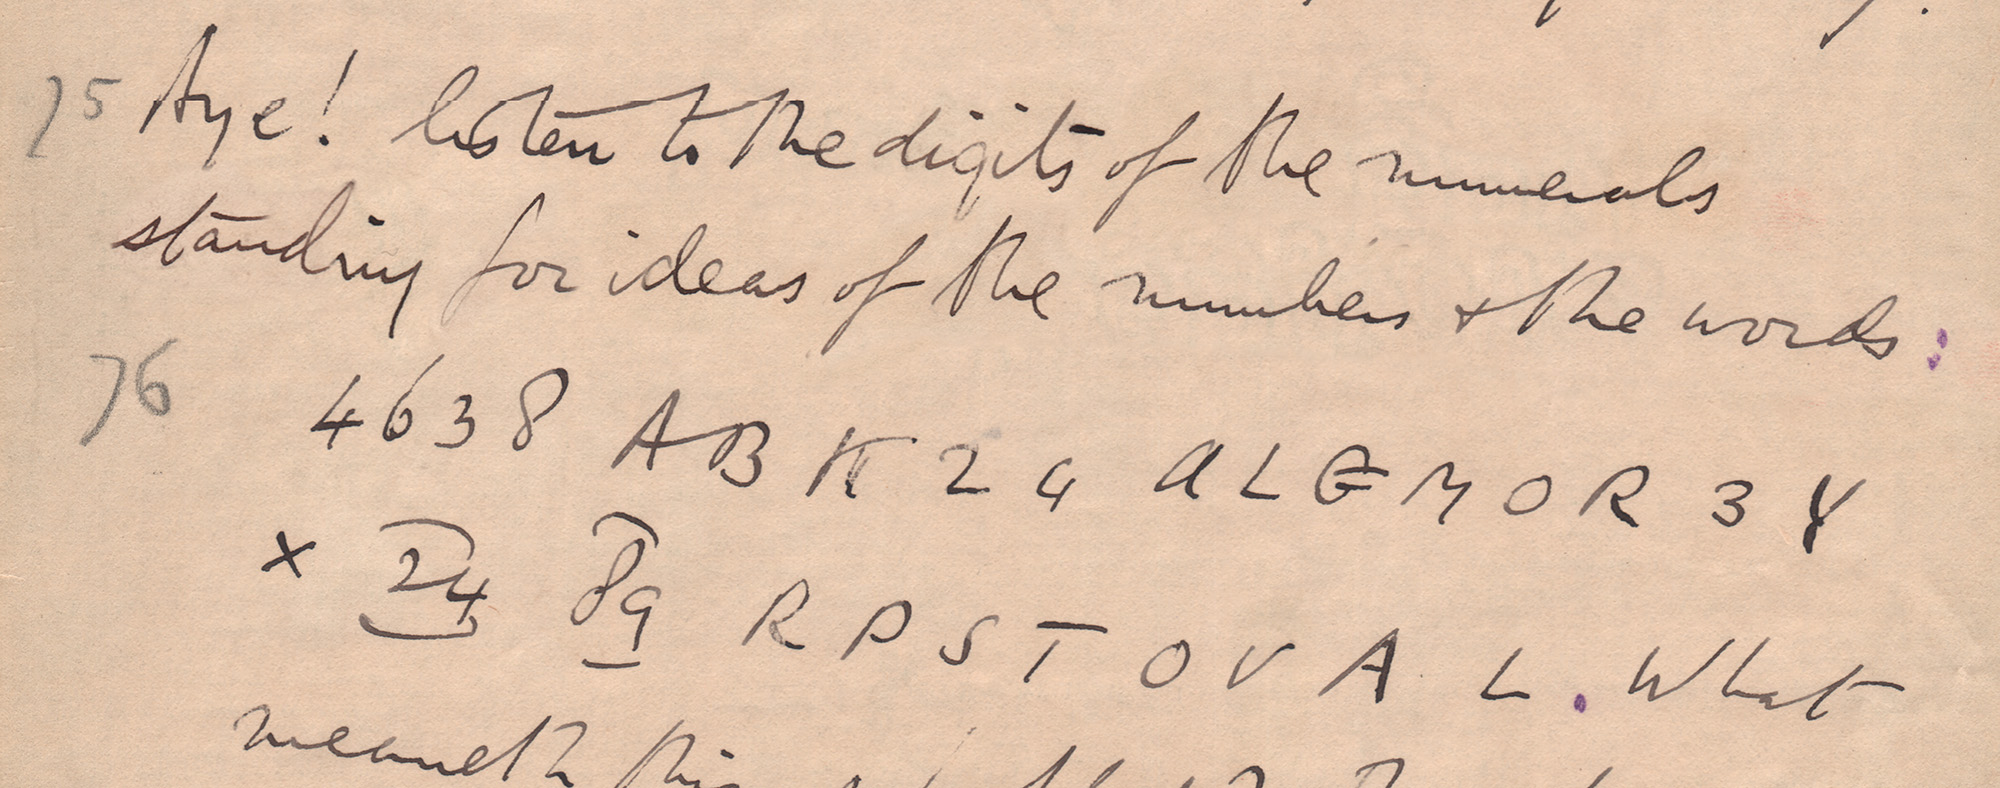 75 Aye! listen to the digits of the numerals
standing for ideas of the numbers & the words:
76 4638 A B K 2 4 a L G M O R 3 Y
x 24 89 R P S T O V A L. What
meaneth this